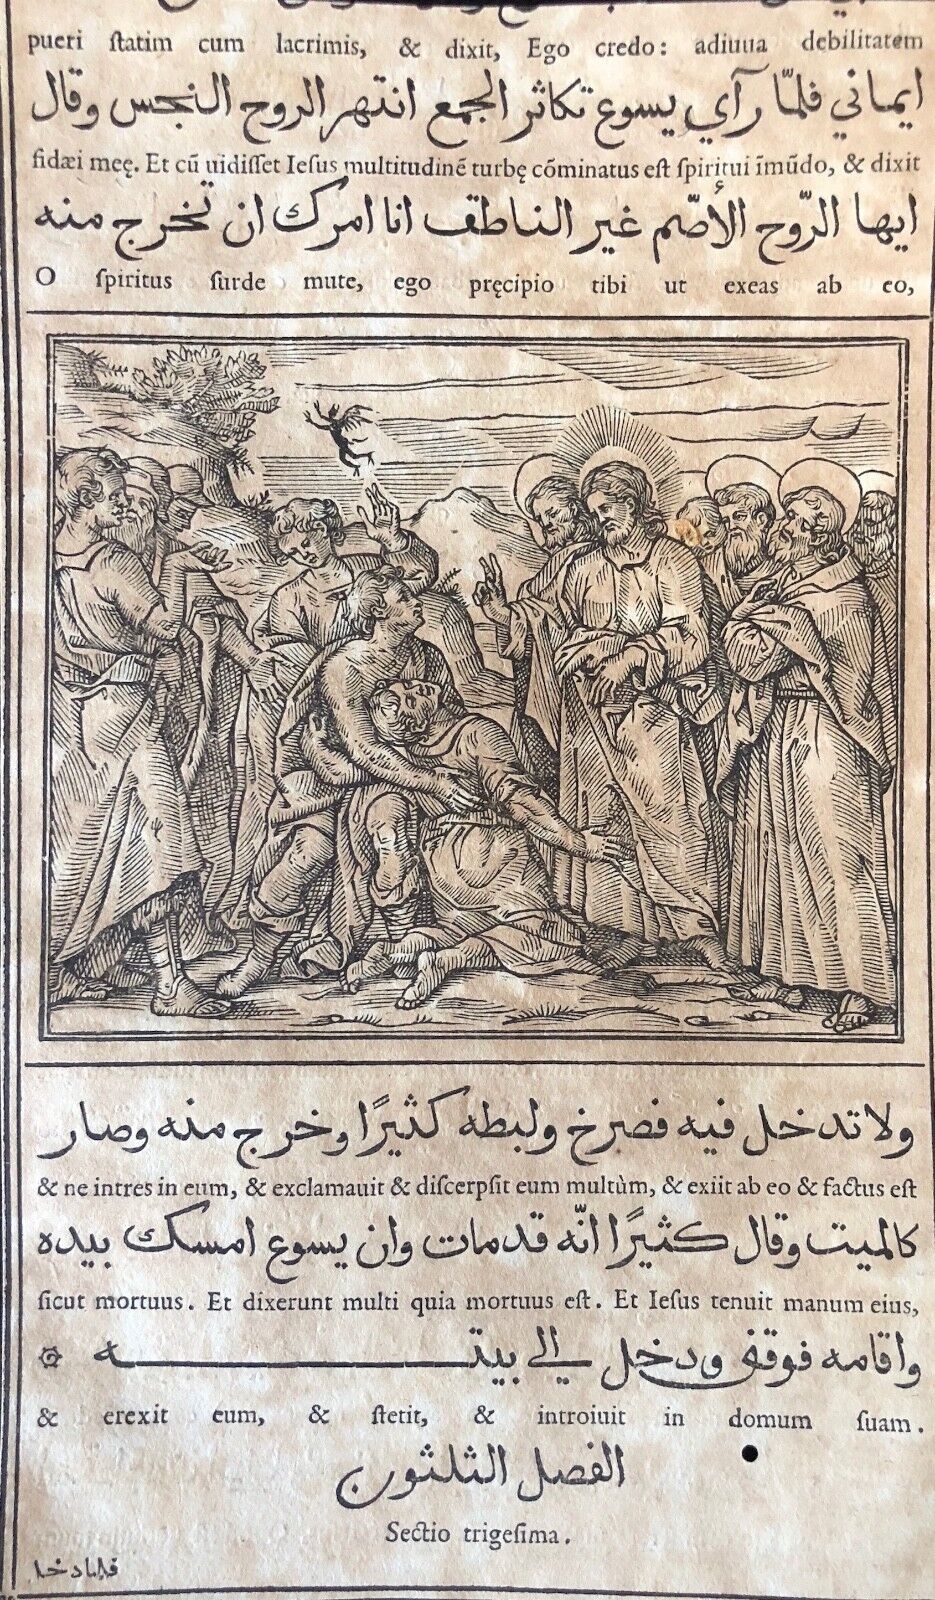 pueri ſtatim cum lacrimis, & dixit, Ego credo: adiuua debilitatem
ايماني فلمّا رآي يسوع تكاثر الجمع انتهر الروح النجس وقال
fidæi meę. Et cū uidiſſet Ieſus multitudinē turbę cōminatus eſt ſpiritui īmūdo, & dixit
ايها الرّوح الأصّم غير الناطق انا امرك ان تخرج منه
O ſpiritus ſurde mute, ego pręcipio tibi ut exeas ab eo,
ولا تدخل فيه فصرخ ولبطه كثيرًا وخرج منه وصار
& ne intres in eum, & exclamauit & diſcerpſit eum multùm, & exiit ab eo & factus eſt
كالميت وقال كثيرًا انّه قد مات وان يسوع امسك بيده
ſicut mortuus. Et dixerunt multi quia mortuus eſt. Et Ieſus tenuit manum eius,
واقامه فوقف ودخل الي بيتـــــــه
& erexit eum, & ſtetit, & introiuit in domum ſuam.
الفصل الثلثون
Sectio trigeſima.